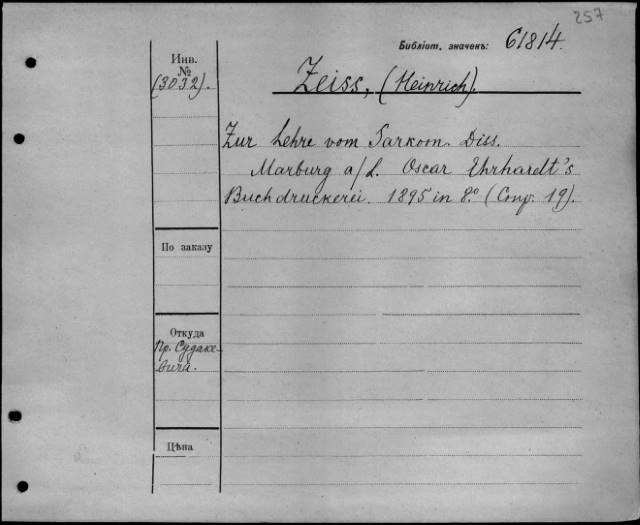 257
Библіот. значекъ: 61814.
Инв.
№
(3032).
Zeiss, (Heinrich).
Zur Lehre vom Sarkom. Diss.
Marburg a/L. Oscar Ehrhardt's
Buchdruckerei. 1895 in 8.° (Стр. 19).
По заказу
Откуда
Пр. Судаке-
вича.
Цѣна